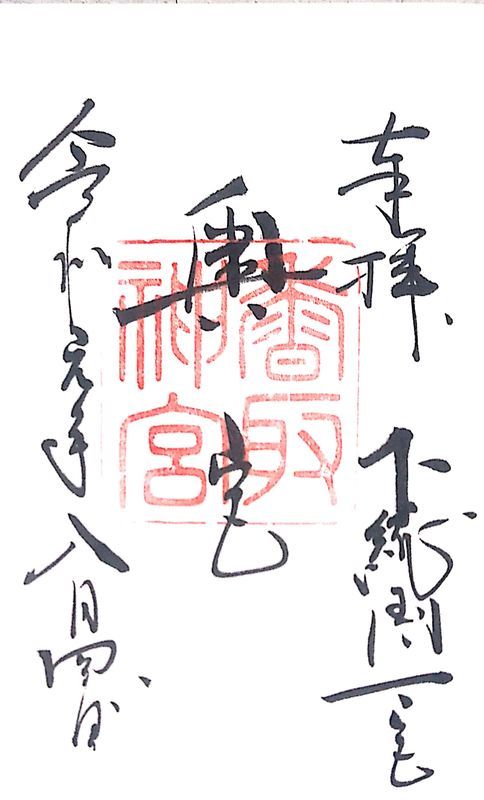 奉拝
下総國一宮
奥宮
香取神宮
令和元年八月四日